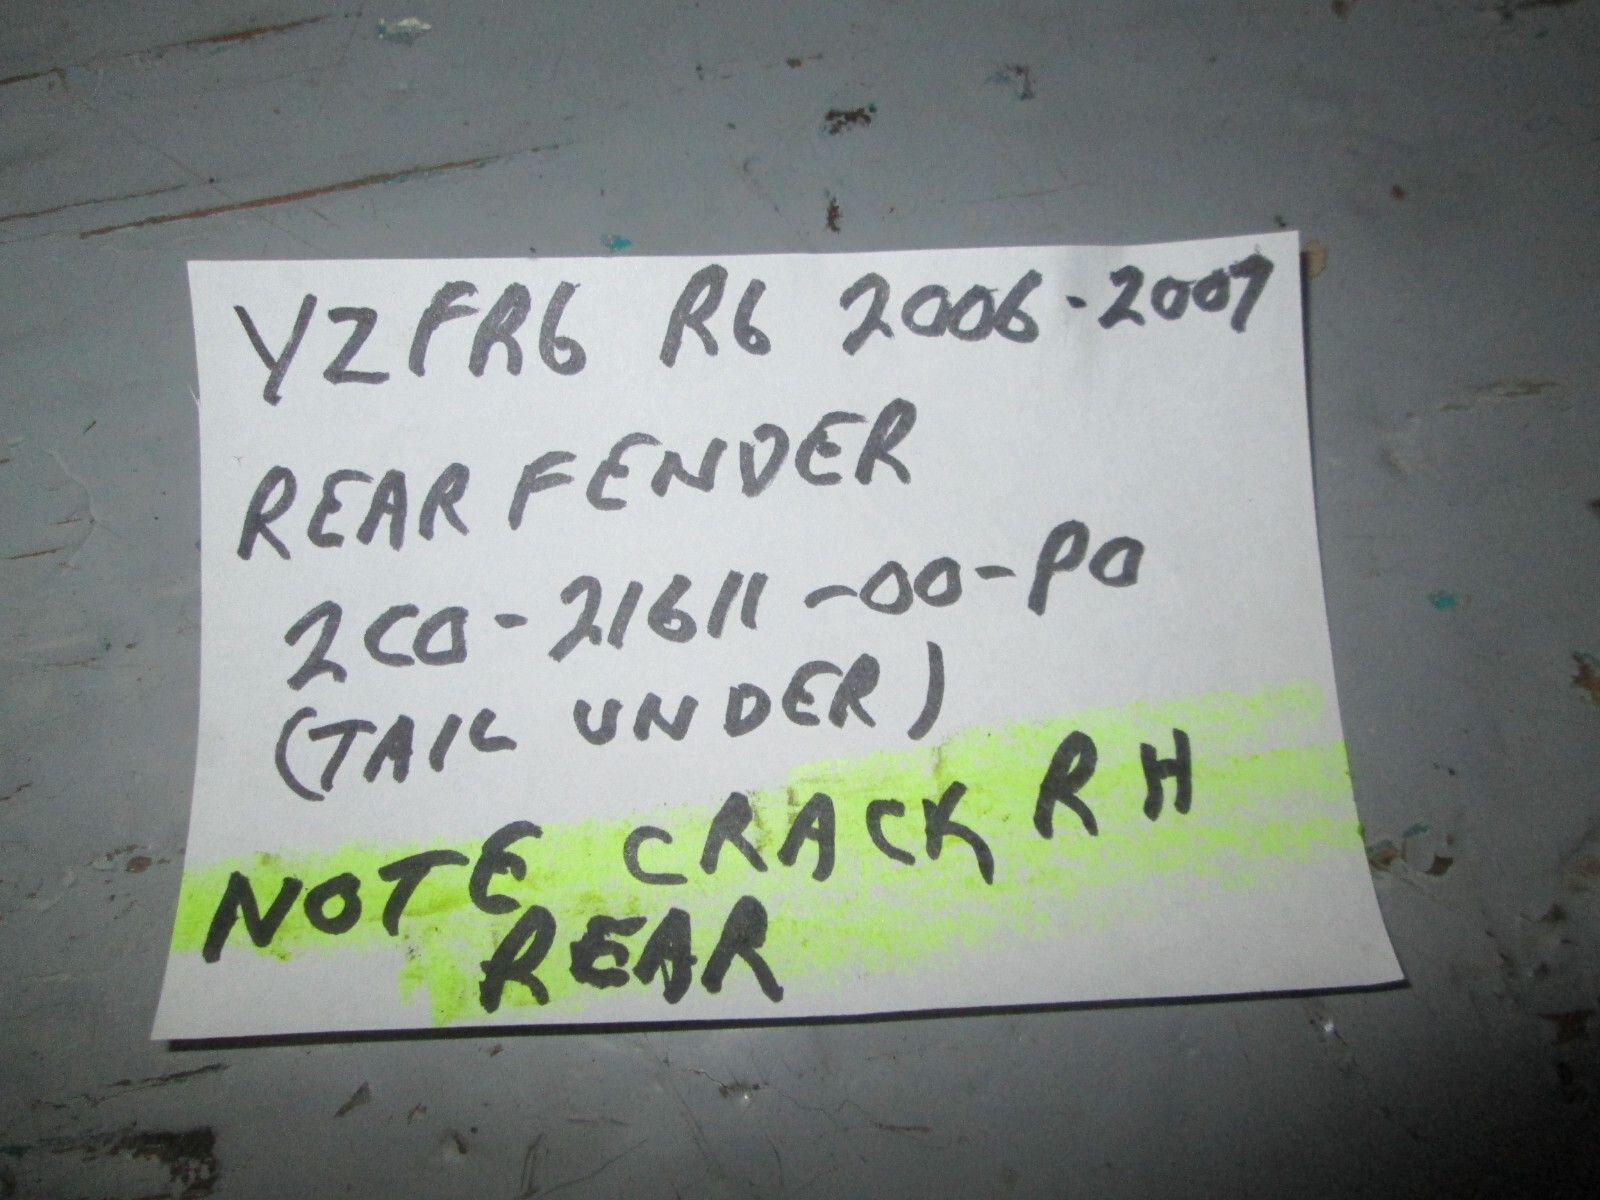 YZFR6 R6 2006-2007
REAR FENDER
2C0-21611-00-P0
(TAIL UNDER)
NOTE CRACK RH
REAR